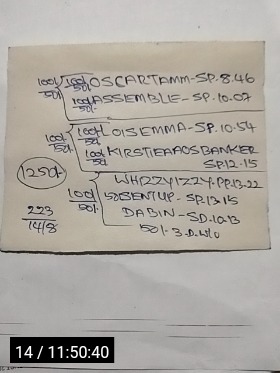 100/50/- 100/50/- OSCARTAMM-SP. 8.46
100/50/- ASSEMBLE - SP. 10-07
100/50/- 100/- LOISEMMA-SP. 10-54
100/50/- KIRSTIEAAOSBANKER
SP 12-15
1250/-
WHIZZYIZZY-PP.13-22
100/50/- 50/- BENTUP - SP.13-15
223 DABIN-SD.
14/8 50/- 3.D.W/O
14 / 11:50:40